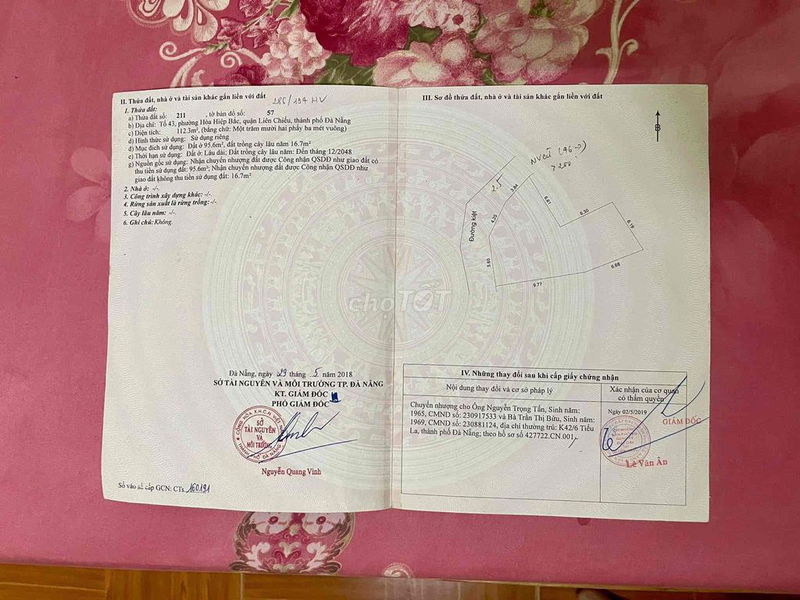 II. Thửa đất, nhà ở và tài sản khác gắn liền với đất
286/134 HV
1. Thửa đất:
a) Thửa đất số: 211 , tờ bản đồ số: 57
b) Địa chỉ: Tổ 43, phường Hòa Hiệp Bắc, quận Liên Chiểu, thành phố Đà Nẵng
c) Diện tích: 112.3m², (bằng chữ: Một trăm mười hai phẩy ba mét vuông)
d) Hình thức sử dụng: Sử dụng riêng
đ) Mục đích sử dụng: Đất ở 95.6m², đất trồng cây lâu năm 16.7m²
e) Thời hạn sử dụng: Đất ở: Lâu dài; Đất trồng cây lâu năm: Đến tháng 12/2048
g) Nguồn gốc sử dụng: Nhận chuyển nhượng đất được Công nhận QSDĐ như giao đất có
thu tiền sử dụng đất: 95.6m²; Nhận chuyển nhượng đất được Công nhận QSDĐ như
giao đất không thu tiền sử dụng đất: 16.7m²
2. Nhà ở: -/-
3. Công trình xây dựng khác: -/-
4. Rừng sản xuất là rừng trồng: -/-
5. Cây lâu năm: -/-
6. Ghi chú: Không.
Đà Nẵng, ngày 29 tháng 5 năm 2018
SỞ TÀI NGUYÊN VÀ MÔI TRƯỜNG TP. ĐÀ NẴNG
KT. GIÁM ĐỐC
PHÓ GIÁM ĐỐC
SỞ
TÀI NGUYÊN
VÀ
MÔI TRƯỜNG
Nguyễn Quang Vinh
Số vào sổ cấp GCN: CTs 160191
III. Sơ đồ thửa đất, nhà ở và tài sản khác gắn liền với đất
B
2.5
3.94
4.20
5.60
Đường kiệt
6.61
6.30
6.19
6.88
9.77
choTỐT
IV. Những thay đổi sau khi cấp giấy chứng nhận
Nội dung thay đổi và cơ sở pháp lý
Xác nhận của cơ quan
có thẩm quyền
Chuyển nhượng cho Ông Nguyễn Trọng Tấn, Sinh năm:
1965, CMND số: 230917533 và Bà Trần Thị Bửu, Sinh năm:
1969, CMND số: 230881124, địa chỉ thường trú: K42/6 Tiểu
La, thành phố Đà Nẵng; theo hồ sơ số 427722.CN.001./-
Ngày 02/5/2019
GIÁM ĐỐC
Lê Văn Ân